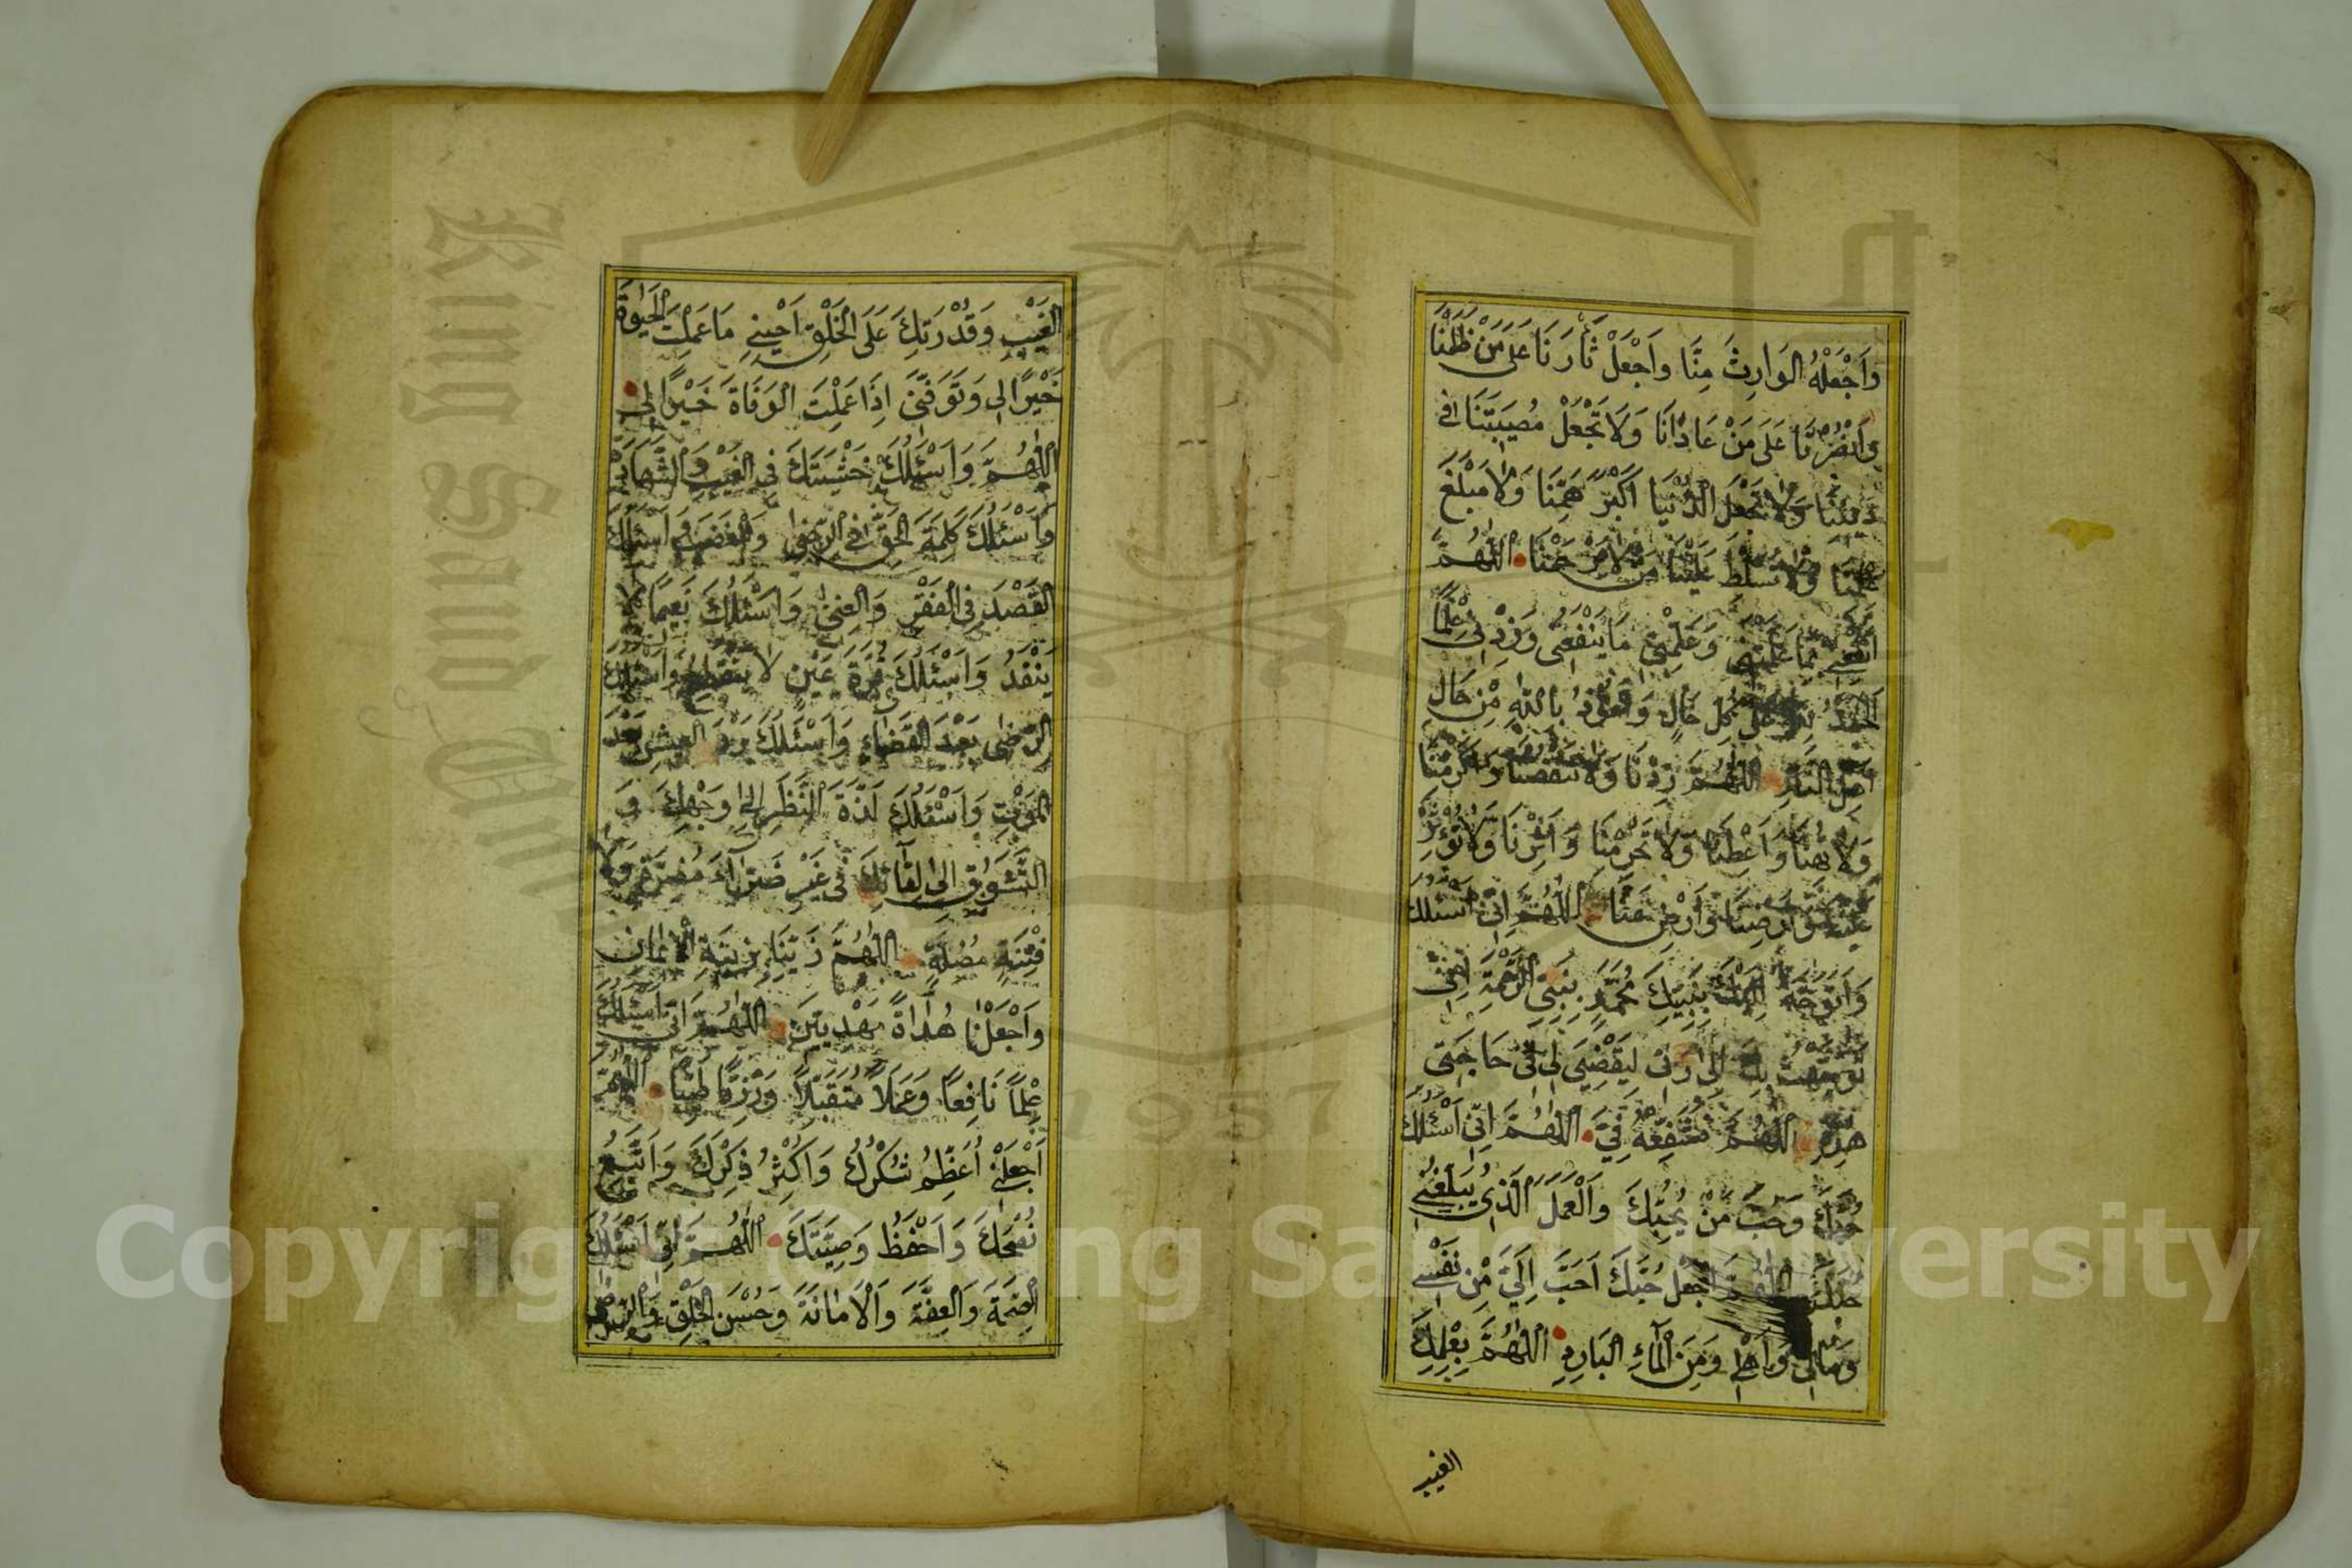 وَاجْعَلْهُ الوَارِثَ مِنَّا وَاجْعَلْ ثَأرَنَا عَلَى مَنْ ظَلَمَنَا
وَانْصُرْنَا عَلَى مَنْ عَادَانَا وَلَا تَجْعَلْ مُصِيبَتَنَا فِى
دِينِنَا وَلَا تَجْعَلِ الدُّنْيَا اَكْبَرَ هَمِّنَا وَلَا مَبْلَغَ
عِلْمِنَا وَلَا تُسَلِّطْ عَلَيْنَا مَنْ لَا يَرْحَمُنَا اَللّٰهُمَّ
انْفَعْنِى بِمَا عَلَّمْتَنِى وَعَلِّمْنِى مَا يَنْفَعُنِى وَزِدْنِى عِلْمًا
اَلْحَمْدُ لِلّٰهِ عَلَى كُلِّ حَالٍ وَاَعُوْذُ بِاللّٰهِ مِنْ حَالِ
اَهْلِ النَّارِ اَللّٰهُمَّ زِدْنَا وَلَا تَنْقُصْنَا وَاَكْرِمْنَا
وَلَا تُهِنَّا وَاَعْطِنَا وَلَا تَحْرِمْنَا وَاٰثِرْنَا وَلَا تُؤْثِرْ
عَلَيْنَا وَاَرْضِنَا وَارْضَ عَنَّا اَللّٰهُمَّ اِنِّى اَسْئَلُكَ
وَاَتَوَجَّهُ اِلَيْكَ بِنَبِيِّكَ مُحَمَّدٍ نَبِىِّ الرَّحْمَةِ اِنِّى
تَوَجَّهْتُ بِكَ اِلَى رَبِّى لِيَقْضِىَ لِى فِى حَاجَتِى
هٰذِهِ اَللّٰهُمَّ فَشَفِّعْهُ فِىَّ اَللّٰهُمَّ اِنِّى اَسْئَلُكَ
حُبَّكَ وَحُبَّ مَنْ يُحِبُّكَ وَالْعَمَلَ الَّذِى يُبَلِّغُنِى
حُبَّكَ اَللّٰهُمَّ اجْعَلْ حُبَّكَ اَحَبَّ اِلَىَّ مِنْ نَفْسِى
وَمَالِى وَاَهْلِى وَمِنَ الْمَاءِ البَارِدِ اَللّٰهُمَّ بِعِلْمِكَ
الغيب
الغَيْبِ وَقُدْرَتِكَ عَلَى الْخَلْقِ اَحْيِنِى مَا عَلِمْتَ الْحَيٰوةَ
خَيْرًا لِى وَتَوَفَّنِى اِذَا عَلِمْتَ الوَفَاةَ خَيْرًا لِى
اَللّٰهُمَّ وَاَسْئَلُكَ خَشْيَتَكَ فِى الغَيْبِ وَالشَّهَادَةِ
وَاَسْئَلُكَ كَلِمَةَ الْحَقِّ فِى الرِّضَا وَالْغَضَبِ وَاَسْئَلُكَ
القَصْدَ فِى الْفَقْرِ وَالْغِنٰى وَاَسْئَلُكَ نَعِيمًا لَا
يَنْفَدُ وَاَسْئَلُكَ قُرَّةَ عَيْنٍ لَا يَنْقَطِعُ وَاَسْئَلُكَ
الرِّضٰى بَعْدَ الْقَضَاءِ وَاَسْئَلُكَ بَرْدَ الْعَيْشِ بَعْدَ
الْمَوْتِ وَاَسْئَلُكَ لَذَّةَ النَّظَرِ اِلٰى وَجْهِكَ وَ
الشَّوْقِ اِلَى لِقَائِكَ فِى غَيْرِ ضَرَّاءَ مُضِرَّةٍ وَلَا
فِتْنَةٍ مُضِلَّةٍ اَللّٰهُمَّ زَيِّنَّا بِزِينَةِ الْاِيْمَانِ
وَاجْعَلْنَا هُدَاةً مَهْدِيِّينَ اَللّٰهُمَّ اِنِّى اَسْئَلُكَ
عِلْمًا نَافِعًا وَعَمَلًا مُتَقَبَّلًا وَرِزْقًا طَيِّبًا اَللّٰهُمَّ
اجْعَلْنِى اُعَظِّمُ شُكْرَكَ وَاُكْثِرُ ذِكْرَكَ وَاَتَّبِعُ
نُصْحَكَ وَاَحْفَظُ وَصِيَّتَكَ اَللّٰهُمَّ اِنِّى اَسْئَلُكَ
الصِّحَّةَ وَالْعِفَّةَ وَالْاَمَانَةَ وَحُسْنَ الْخُلُقِ وَالرِّضَا
King Saud
1957
Copyright © King Saud University